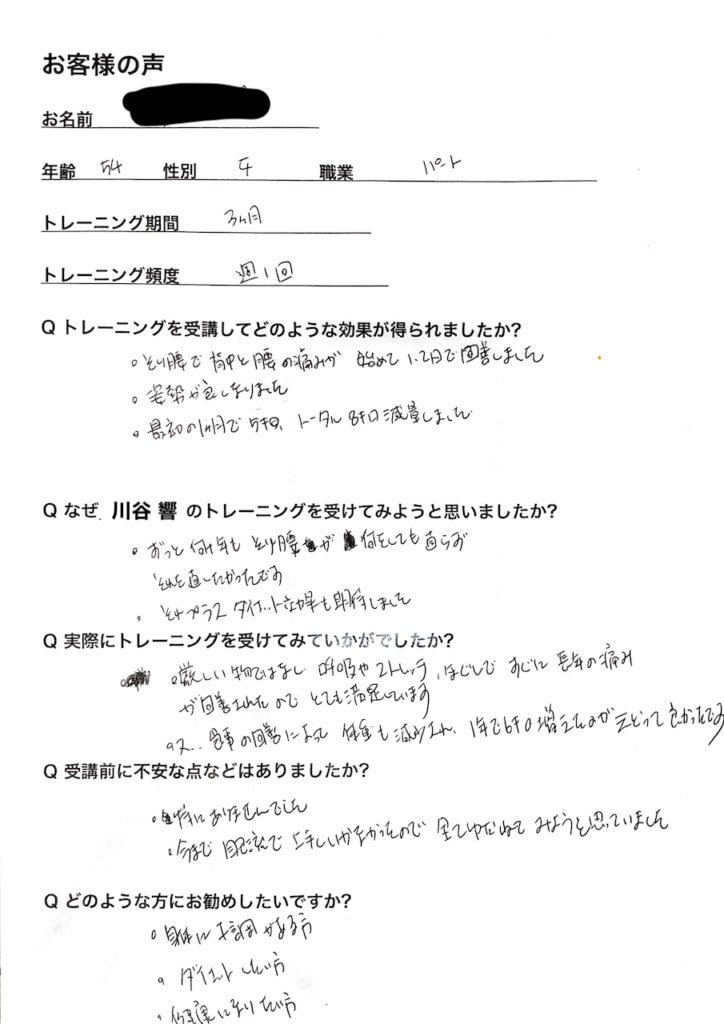 お客様の声
お名前
年齢 54 性別 女 職業 パート
トレーニング期間 3ヶ月
トレーニング頻度 週1回
Q トレーニングを受講してどのような効果が得られましたか?
。そり腰で背中と腰の痛みが 始めて1、2日で回善しました
。姿勢が良くなりました
。最初の1ヶ月で5キロ、トータル8キロ減量しました
Q なぜ 川谷 響 のトレーニングを受けてみようと思いましたか?
。ずっと何年も そり腰が 何をしても直らず
それを直したかったです
。それプラス ダイエット効果も期待しました
Q 実際にトレーニングを受けてみていかがでしたか?
。厳しい物ではなく 呼吸やストレッチ、ほぐしで すぐに 長年の痛み
が回善されたので とても満足しています
。又、食事の回善によって 体重も減り 1年で6キロ増えたのが もどって良かったです
Q 受講前に不安な点などはありましたか?
。特にありませんでした
。今まで 自己流で 上手くいかなかったので 全てゆだねて みようと思っていました
Q どのような方にお勧めしたいですか?
。身体に不調がある方
。ダイエットしたい方
。健康になりたい方